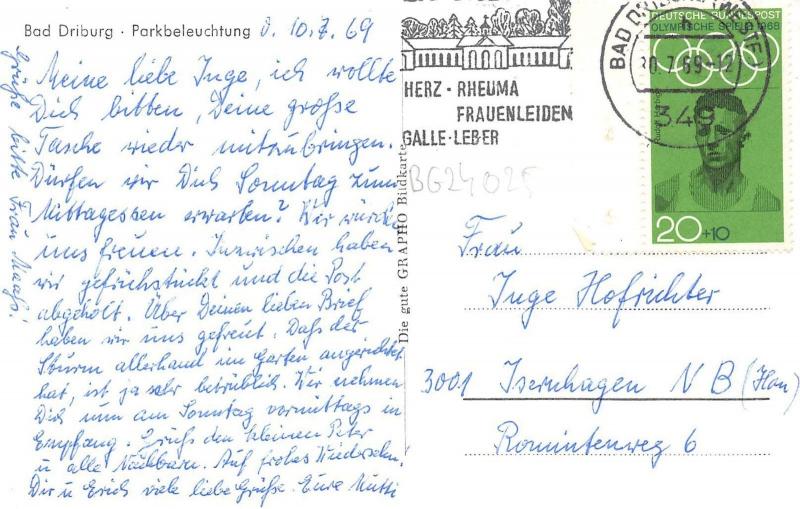 Bad Driburg · Parkbeleuchtung d. 10.7.69
Meine liebe Inge, ich wollte
Dich bitten, Deine große
Tasche wieder mitzubringen.
Dürfen wir Dich Sonntag zum
Mittagessen erwarten? Wir würden
uns freuen. Inzwischen haben
wir gefrühstückt und die Post
abgeholt. Über Deinen lieben Brief
haben wir uns gefreut. Daß der
Sturm allerhand im Garten angerichtet
hat, ist ja sehr betrüblich. Wir nehmen
Dich nun am Sonntag vormittags in
Empfang. Grüß den kleinen Peter
u alle Nachbarn. Auf frohes Wiedersehn!
Dir u Erich viele liebe Grüße. Eure Mutti
Grüße bitte Frau Maaß!
Die gute GRAPHO Bildkarte
HERZ · RHEUMA
FRAUENLEIDEN
GALLE · LEBER
BAD DRIBURG (WESTF)
10.7.69-12
349
DEUTSCHE BUNDESPOST
OLYMPISCHE SPIELE 1968
Rudolf Harbig
20+10
BG24025
Frau
Inge Hofrichter
3001 Isernhagen NB (Han)
Romintenweg 6